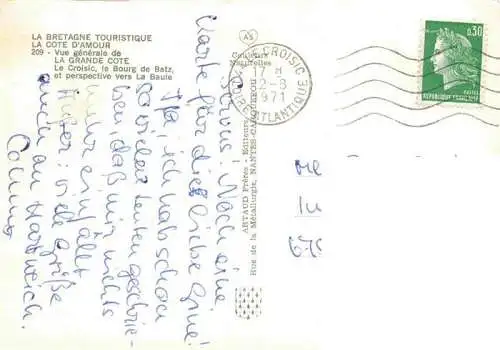 LA BRETAGNE TOURISTIQUE
LA COTE D'AMOUR
209 - Vue générale de
LA GRANDE COTE
Le Croisic, le Bourg de Batz,
et perspective vers La Baule
Couleurs
Naturelles
LE CROISIC
17 H
1971
LOIRE ATLANTIQUE
0,30
POSTES
REPUBLIQUE FRANÇAISE
ARTAUD Frères - Editeurs
Rue de la Métallurgie, NANTES-CARQUEFOU
Noch eine
Karte für die liebe
ich hab schon
so vielen Leuten geschrie-
ben, daß mir nichts
mehr einfällt
viele Grüße
auch an